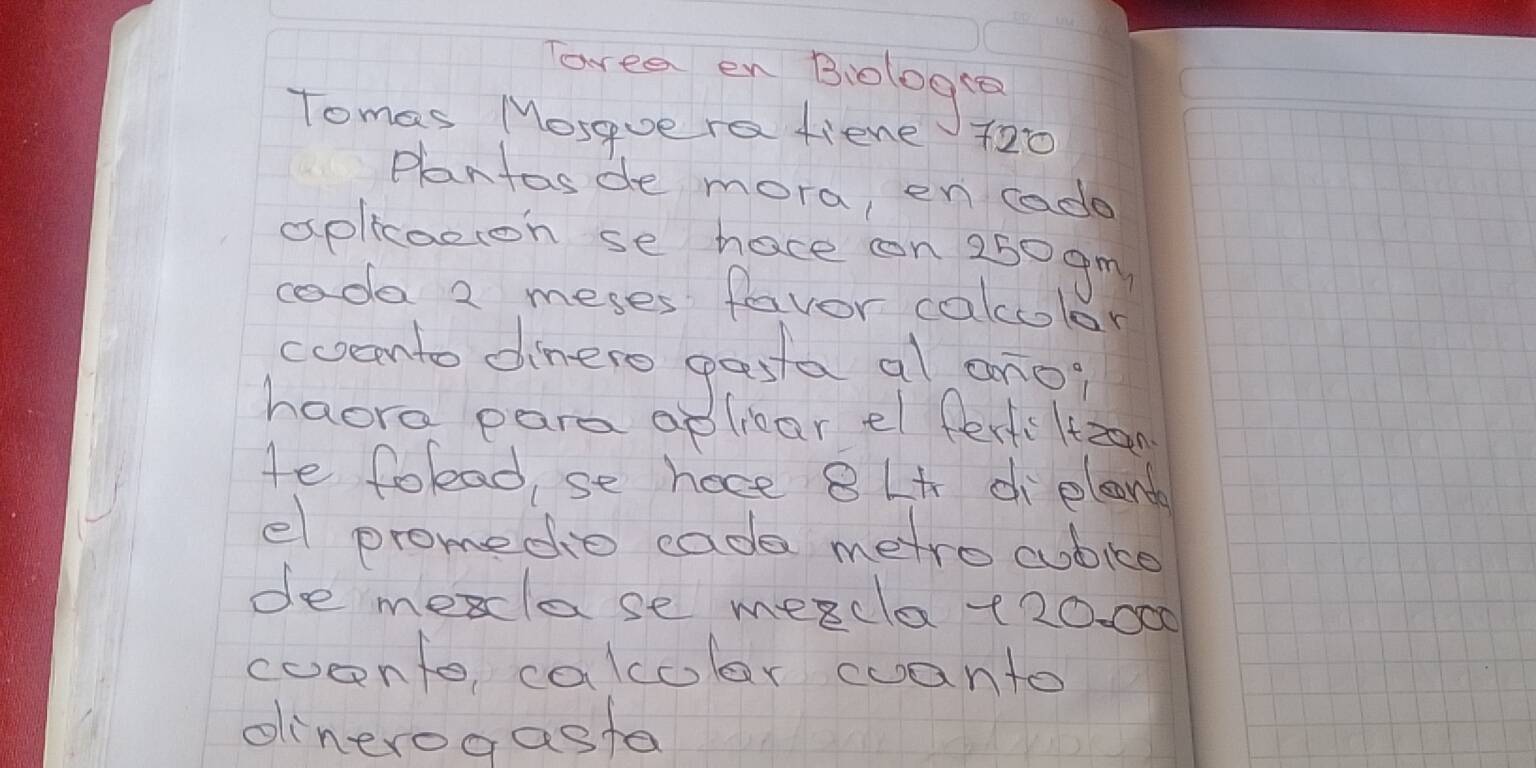 Tarea en Biologia
Tomas Mosquera tiene 720
Plantas de mora, en cada
aplicación se hace con 250 gm,
cada 2 meses favor calcular
cuanto dinero gasta al año;
haora para aplicar el fertilizan-
te folead, se hace 8 Ltr di planta
el promedio cada metro cubico
de mezcla se mezcla 120.000
cuanto, calcular cuanto
dinero gasta